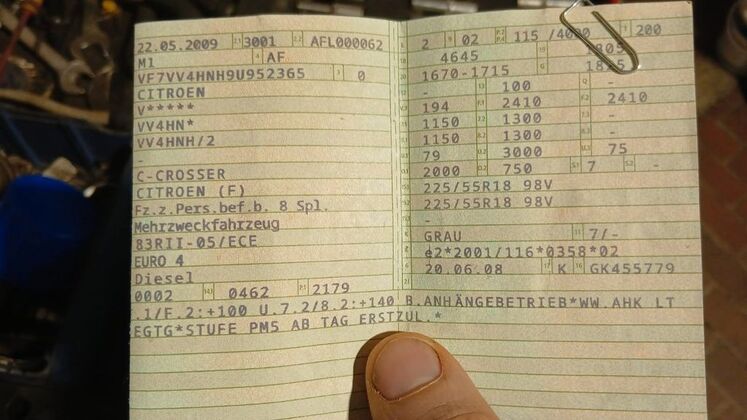 22.05.2009 2.1 3001 2.2 AFL000062
M1 4 AF
VF7VV4HNH9U952365 3 0
CITROEN
V*****
VV4HN*
VV4HNH/2
-
C-CROSSER
CITROEN (F)
Fz.z.Pers.bef.b. 8 Spl.
Mehrzweckfahrzeug
83RII-05/ECE
EURO 4
Diesel
0002 14.1 0462 P.1 2179
L 2 9 02 P.2 P.4 115 /4000 T 200
4645 1805
1670-1715 G
- 13 100 Q -
194 F.1 2410 F.2 2410
1150 1300 -
1150 8.2 1300 -
79 U.2 3000 U.3 75
2000 O.2 750 S.1 7 S.2 -
225/55R18 98V
225/55R18 98V
-
GRAU 11 7/-
e2*2001/116*0358*02
20.06.08 17 K 16 GK455779
.1/F.2:+100 U.7.2/8.2:+140 B.ANHÄNGEBETRIEB*WW.AHK LT
EGTG*STUFE PM5 AB TAG ERSTZUL.*